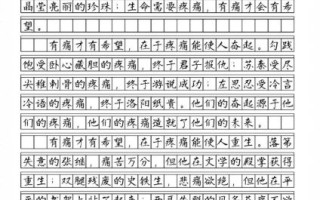 晶莹亮丽的珍珠；生命需要疼痛，有痛才会有希
望。
有痛才有希望，在于疼痛能使人奋起。勾践
饱受卧心藏胆的疼痛，终于君子报仇；苏秦受尽
尖锥刺骨的疼痛，终于游说成功；左思忍受冷言
冷语的疼痛，终于洛阳纸贵。他们的奋起源于他
们的疼痛，他们的疼痛造就了他们的未来。
有痛才有希望，在于疼痛能使人重生。落第
失意的张继，痛苦万分，但他在文学的殿堂获得
重生；双腿残废的史铁生，悲痛欲绝，但他在平